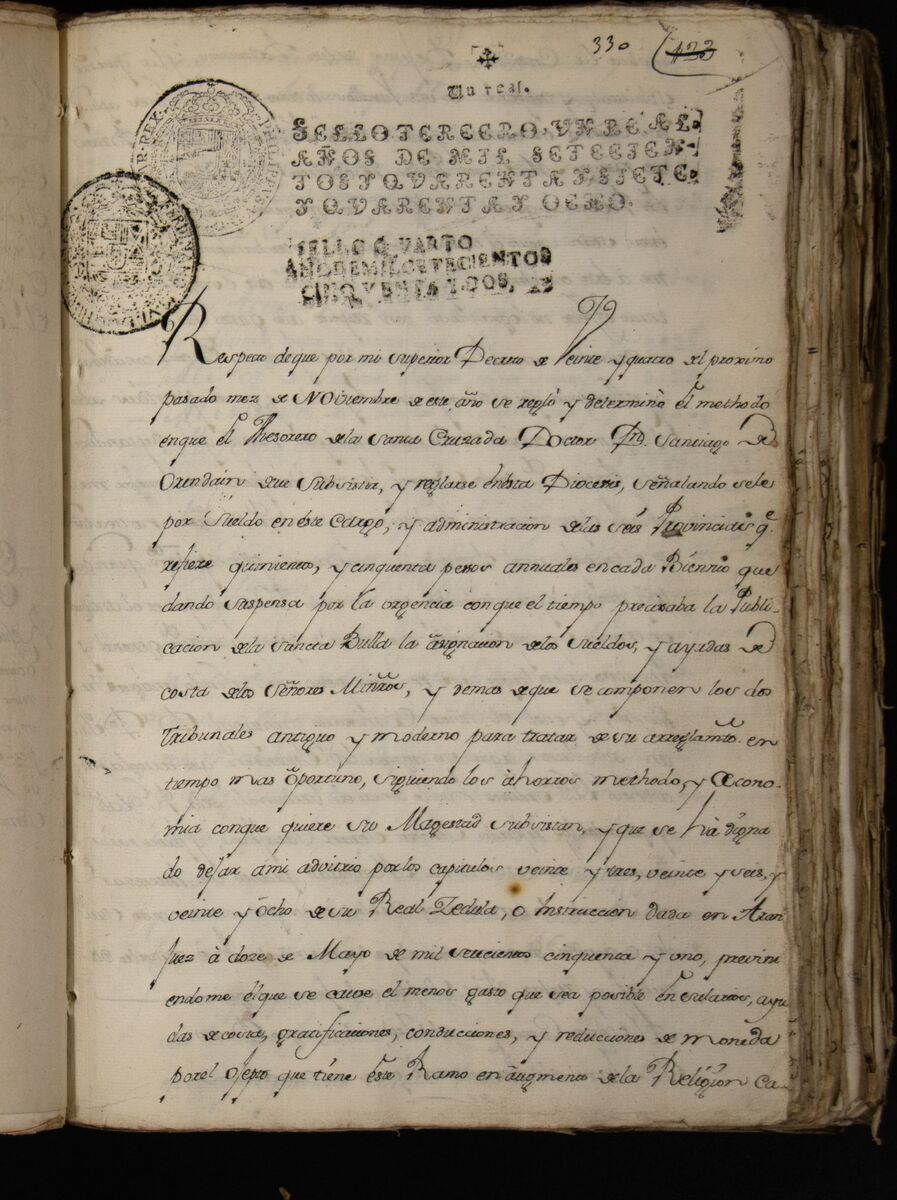 330 (123
Un real.
SELLO TERCERO, UN REAL,
AÑOS DE MIL SETECIEN-
TOS Y QVARENTA Y SIETE,
Y QVARENTA Y OCHO.
SELLO QVARTO
AÑO DE MIL SETECIENTOS
CINQVENTA Y DOS,
Respecto de que por mi superior Decreto de Veinte y quatro del proximo
pasado mez de NOViembre de este año se regló y determinó el methodo
enque el Thesorero dela Santa Cruzada Doctor Dn. Santiago de
Orendain deve subsistir, y reglarse enesta Diocesis, señalandosele
por sueldo eneste Cargo, y administracion delas seis Provincias qe.
refiere quinientos, y cinquenta pesos annuales encada Biennio que
dando suspensa por la urgencia conque el tiempo precisaba la Publi-
cacion dela Sancta Bulla la asignacion delos sueldos, y ayudas de
costa delos Señores Minros, y demas de que se componen los dos
Tribunales antiguo y moderno para tratar de su arreglamto. en
tiempo mas oportuno, siguiendo los ahorros methodo, y Œcono-
mia conque quiere su Magestad subsistan, y que se hà digna
do dejar ami advitrio por los capitulos veinte y tres, veinte y seis, y
veinte y ocho de su Real Zedula, o Instruccion dada en Aran
juez à doze de Mayo de mil setecientos cinquenta y uno, previni
endome el que se cause el menos gasto que sea posible en sularios, ayu
das de costa, gratificaciones, conducciones, y reducciones de moneda
porel objeto que tiene este Ramo en augmento dela Religion Ca-